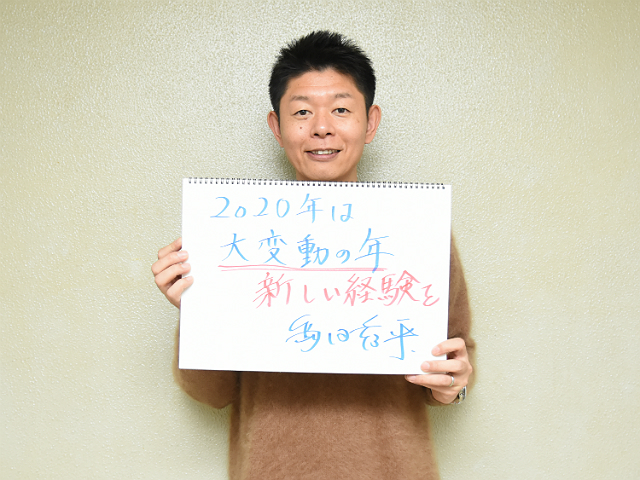 2020年は
大変動の年
新しい経験を
島田秀平